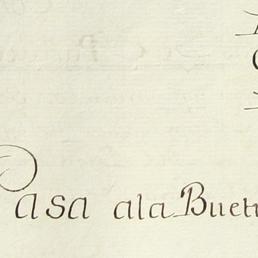 Pasa ala Buelt